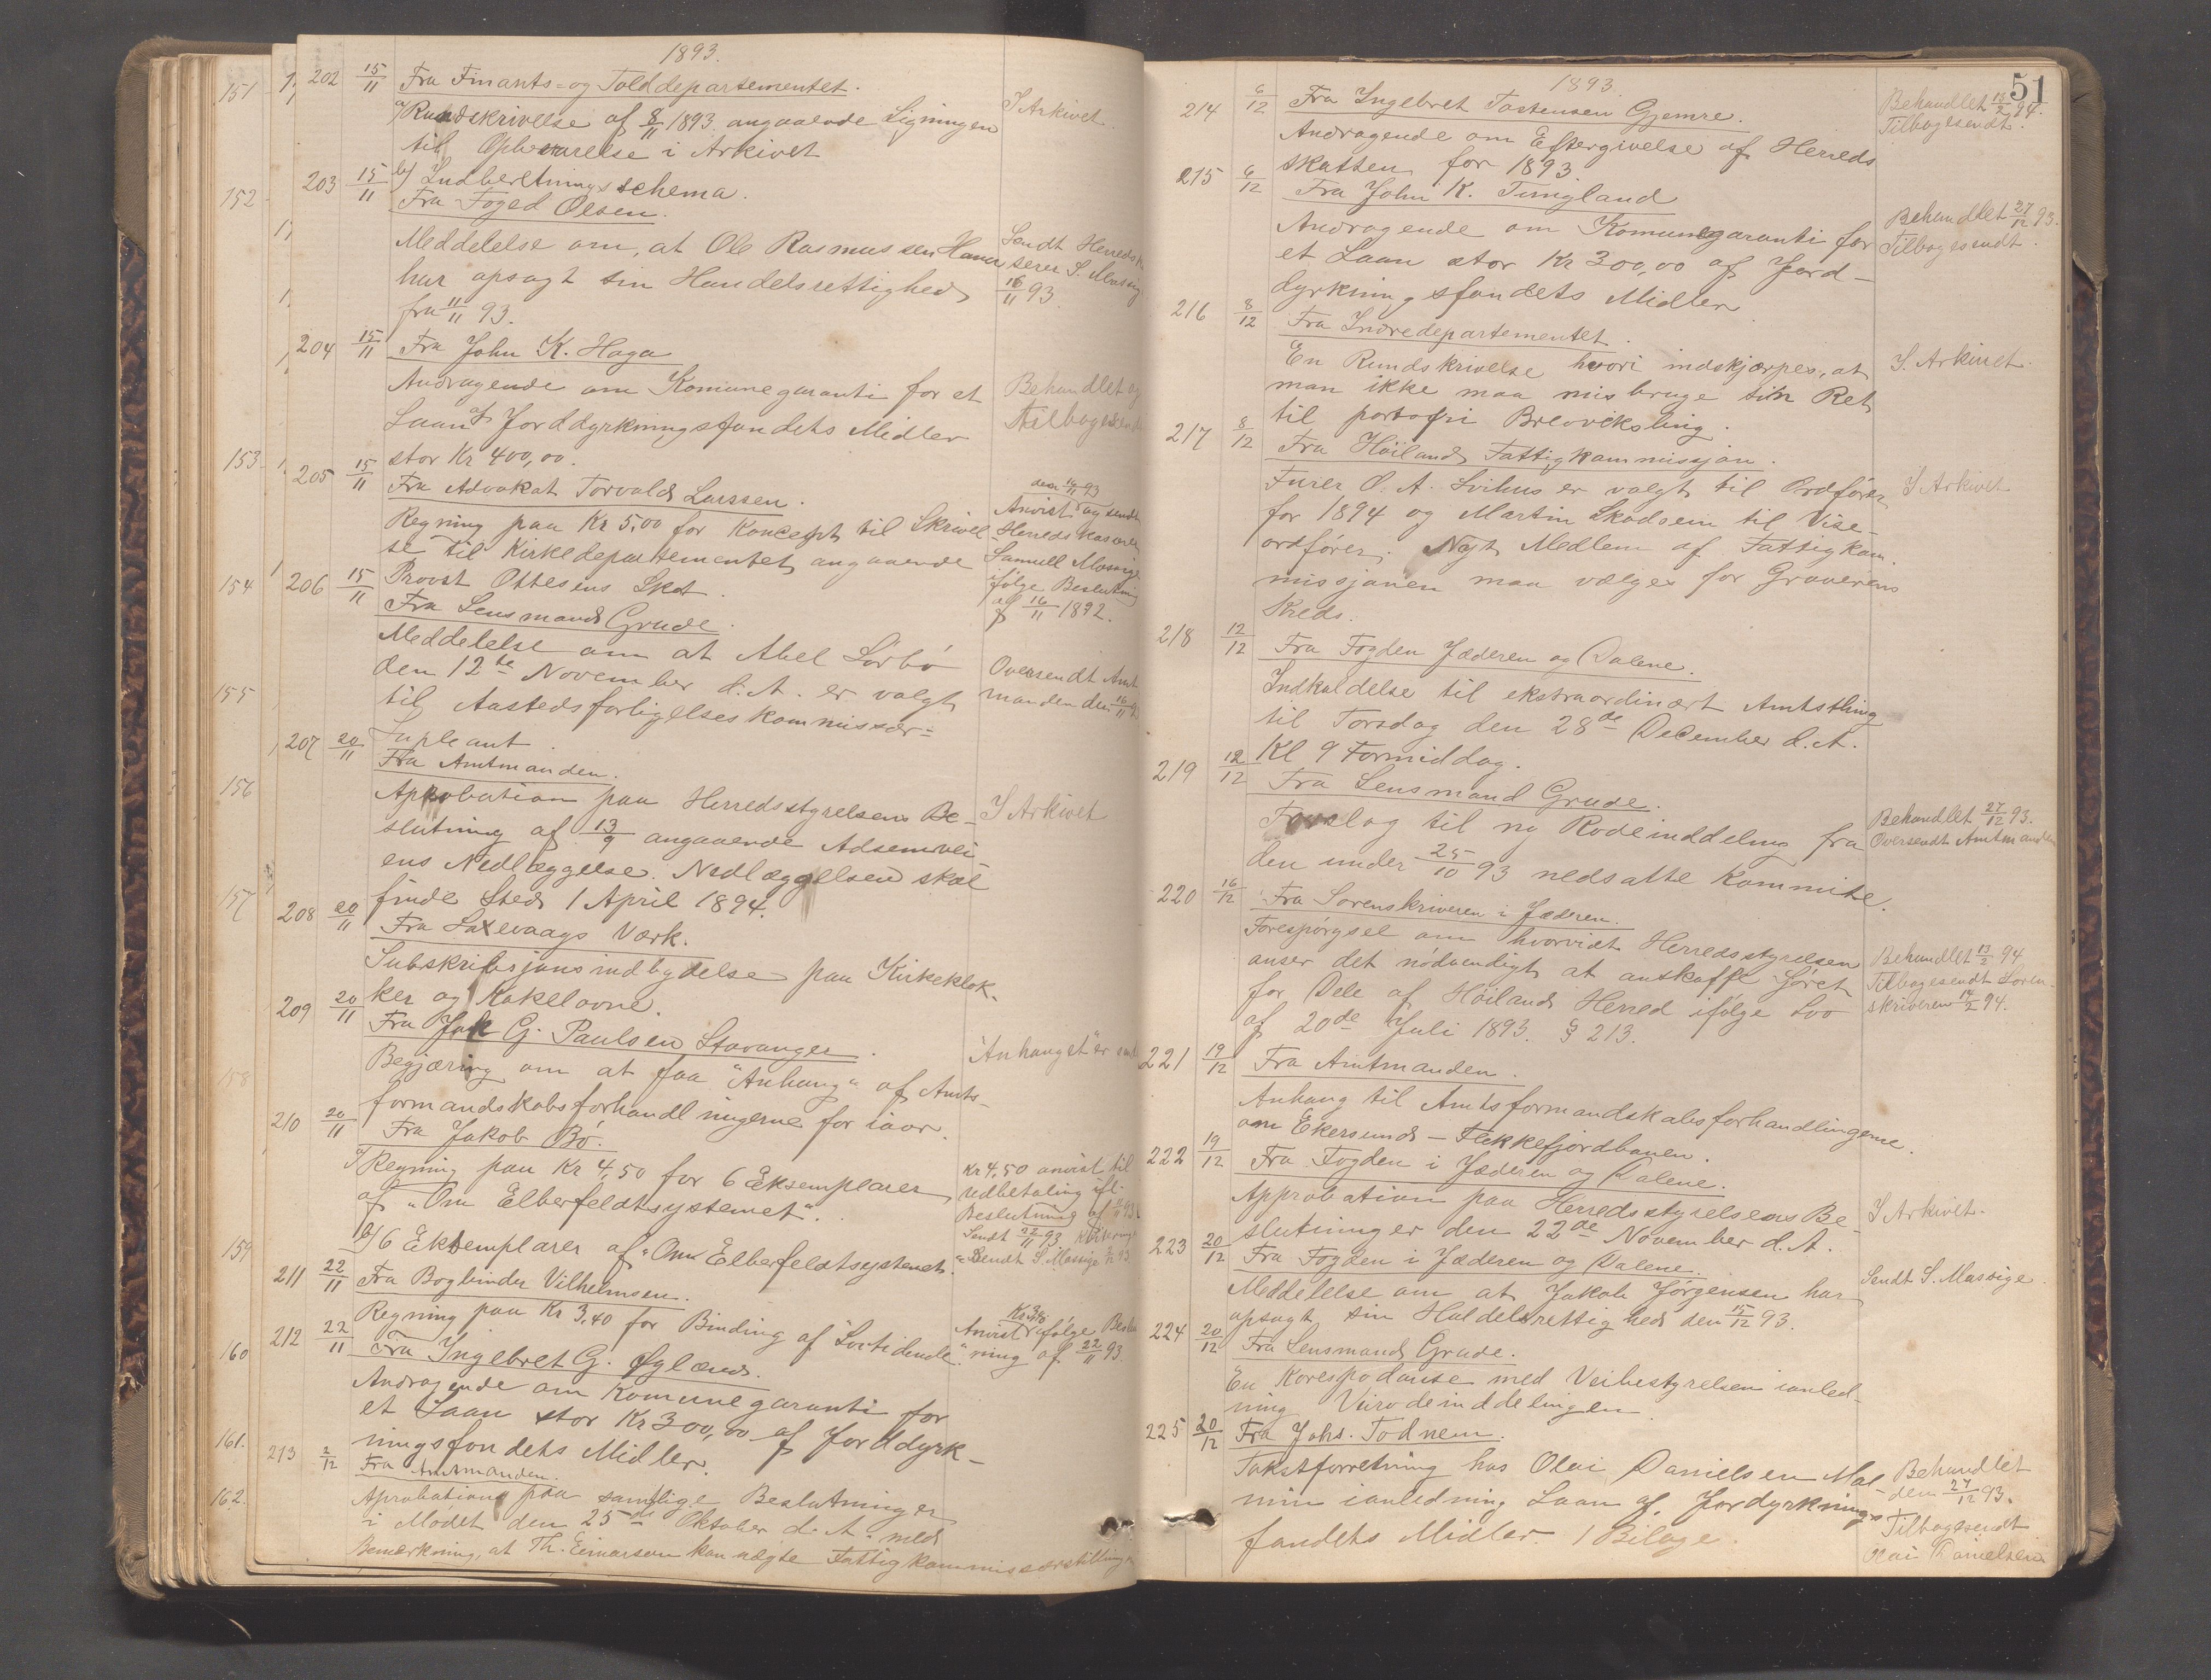 1893.
202 15/11 Fra Finants- og Tolddepartementet.
a/ Rundskrivelse af 8/11 1893 angaaende Ligningen
til Opbevarelse i Arkivet
I Arkivet.
b/ Indberetningsschema.
203 15/11 Fra Foged Olsen.
Meddelelse om, at Ole Rasmussen Hana
har opsagt sin Handelsrettighed
fra 11/11 93.
Sendt Herreds
serer S. Mossig
16/11 93.
204 15/11 Fra John K. Haga
Andragende om Komunegaranti for et
Laan af Jorddyrkningsfondets Midler
stor Kr 400,00.
Behandlet og
Tilbagesend
205 15/11 Fra Advokat Torvald Larssen.
Regning paa Kr 5,00 for Koncept til Skrivel
se til Kirkedepartementet angaaende
Provst Ottesens Skat.
den 16/11 93
Anvist og sendt
Herredskaserer
Samuell Mossige
ifølge Beslutning
af 16/11 1892.
206 15/11 Fra Lensmand Grude.
Meddelelse om at Abel Lörbö
den 12te November d. A. er valgt
til Aastedsforligelseskommissær=
Supleant.
Oversendt Amt
manden den 16/11
207 20/11 Fra Amtmanden.
Aprobation paa Herredsstyrelsens Be-
slutning af 13/9 angaaende Adsemvei-
ens Nedlæggelse. Nedlæggelsen skal
finde Sted 1 April 1894.
I Arkivet
208 20/11 Fra Laxevaags Værk.
Subskribsjonsindbydelse paa Kirkeklok-
ker og Kakelovne.
209 20/11 Fra Jak G. Paulsen Stavanger.
Begjæring om at faa "Anhang" af Amts-
formandskabsforhandlingerne for iaar.
"Anhanget" er send
210 20/11 Fra Jakob Bö.
a/ Regning paa Kr 4,50 for 6 Eksemplarer
af "Om Elberfeldtsystemet".
b/ 6 Eksemplarer af "Om Elberfeldtsystemet.
Kr 4,50 anvist til
udbetaling ifl.
Beslutning af
Sendt 22/11 93
Sendt S. Mossige
211 22/11 Fra Bogbinder Vilhelmsen.
Regning paa Kr 3,40 for Binding af Lovtidende.
Kr 3,40
Anvist ifölge Beslu
ning af 22/11 93.
212 22/11 Fra Ingebret G. Øglænd.
Andragende om Komunegaranti for
et Laan stor Kr 300,00 af Jorddyrk-
ningsfondets Midler.
213 2/12 Fra Amtmanden.
Aprobation paa samtlige Beslutninger
i Mödet den 25de Oktober d. A. med
Bemærkning, at Th. Einarsen kan nægte Fattigkommissærstilling
151
152
153
154
155
156
157
158
159
160
161.
162.
51
1893.
214 6/12 Fra Ingebret Tostensen Gjemre.
Andragende om Eftergivelse af Herreds
skatten for 1893.
Behandlet 13/2 94.
Tilbagesendt.
215 6/12 Fra John K. Tungland
Andragende om Komunegaranti for
et Laan stor Kr 300,00 af Jord-
dyrkningsfondets Midler
Behandlet 27/12 93.
Tilbagesendt.
216 8/12 Fra Indredepartementet.
En Rundskrivelse hvori indskjærpes, at
man ikke maa misbruge sin Ret
til portofri Brevveksling.
I Arkivet.
217 8/12 Fra Höiland Fattigkommissjon.
Furer O. A. Svihus er valgt til Ordförer
for 1894 og Martin Skadsem til Vise-
ordförer. Nyt Medlem af Fattigkom-
missjonen maa vælges for Graverens
Kreds.
I Arkivet
218 12/12 Fra Fogden Jæderen og Dalene.
Indkaldelse til ekstraordinært Amtsthing
til Torsdag den 28de December d. A.
Kl 9 Formiddag.
219 12/12 Fra Lensmand Grude.
Forslag til ny Rodeinddeling fra
den under 25/10 93 nedsatte Kommite.
Behandlet 27/12 93.
Oversendt Amtmanden
220 16/12 Fra Sorenskriveren i Jæderen.
Forespörgsel om hvorvidt Herredsstyrelsen
anser det nödvendigt at anskaffe Jöret
for Dele af Höiland Herred ifölge Lov
af 20de Juli 1893. § 213.
Behandlet 13/2 94
Tilbagesendt Soren-
skriveren 14/2 94.
221 19/12 Fra Amtmanden.
Anhang til Amtsformandskabsforhandlingerne
om Ekersund - Flekkefjordbanen.
222 19/12 Fra Fogden i Jæderen og Dalene.
Approbation paa Herredsstyrelsens Be-
slutninger den 22de November d. A.
I Arkivet.
223 20/12 Fra Fogden i Jæderen og Dalene.
Meddelelse om at Jakob Jörgensen har
opsagt sin Haldelsrettighed den 15/12 93.
Sendt S. Mossige.
224 20/12 Fra Lensmand Grude.
En Korespodanse med Veibestyrelsen ianled-
ning Veirodeinddelingen
225 20/12 Fra Johs. Todnem.
Takstforretning hos Olai Danielsen Mal-
min ianledning Laan af Jordyrknings
fondets Midler. 1 Bilage.
Behandlet
den 27/12 93.
Tilbagesendt
Olai Danielsen